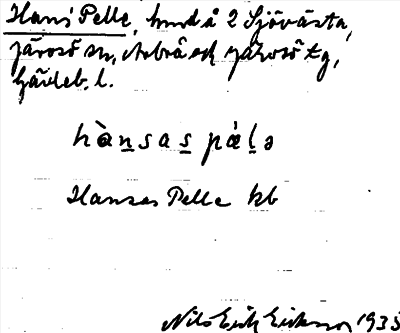 Hans' Pelle, hmd å 2 Sjövästa,
Järosö sn, Arbrå och Järvsö tg,
Gävleb. l.
hὰn̠sas̠ pǽl̠ə
Hansas Pelle kb
Nils Erik Eriksson 1935